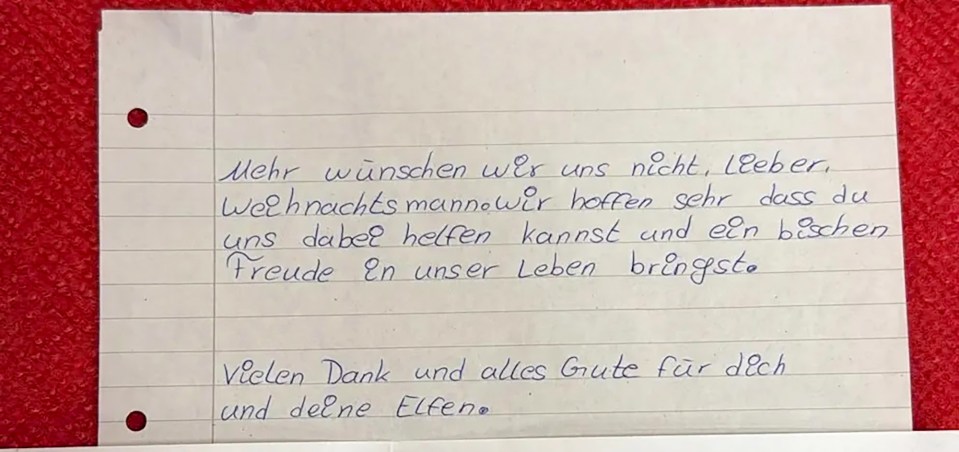 Mehr wünschen wir uns nicht, lieber,
Weihnachtsmann.Wir hoffen sehr dass du
uns dabei helfen kannst und ein bischen
Freude in unser Leben bringst.
Vielen Dank und alles Gute für dich
und deine Elfen.